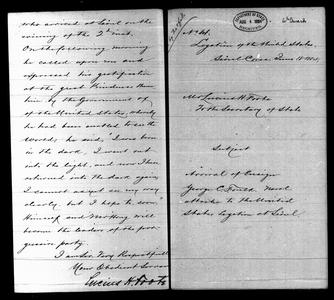 who arrived at Seoul on the
evening of the 2d inst.
On the following morning
he called upon me and
expressed his gratification
at the great kindness shown
him by the Government of
of the United States, whereby
he had been enabled to see the
world; he said, "I was born
in the dark, I went out
into the light, and now I have
returned into the dark again,
I cannot as yet see my way
clearly, but I hope to soon."
Himself and
become the leaders of the pro-
gressive party.
I am Sir Very Respectfully
Your Obedient Servant
Lucius H. Foote
No 86.
Legation of the United States
Mr Lucius H. Foote
To the Secretary of State
Subject
Arrival of Ensign
George C. Foulk Naval
attache to the United
States Legation at Seoul